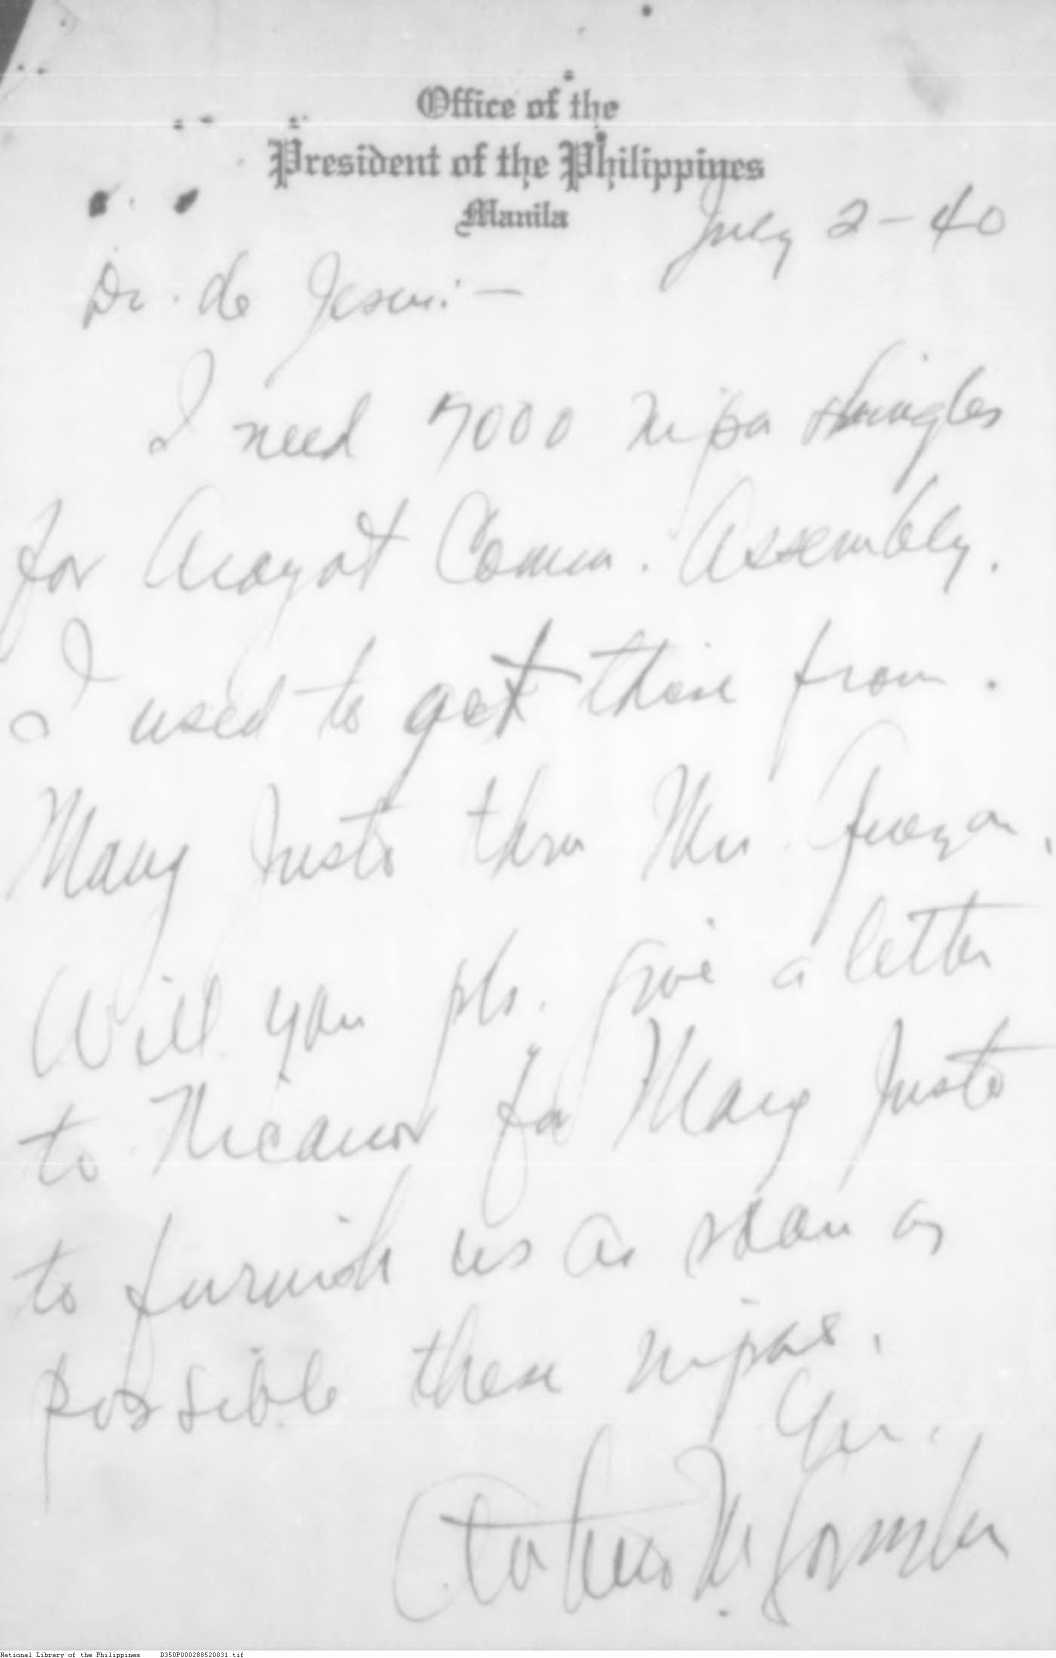 Office of the
President of the Philippines
Manila
July 2-40
Dr. de Jesus:—
I need 7000 nipa shingles
for Arayat Comm. Assembly.
I used to get these from
Mang Justo thru Mr.
Will you pls. give a letter
to Nicanor for Mang Justo
to furnish us as soon as
possible these nipas.
National Library of the Philippines D350P000288520031.tif